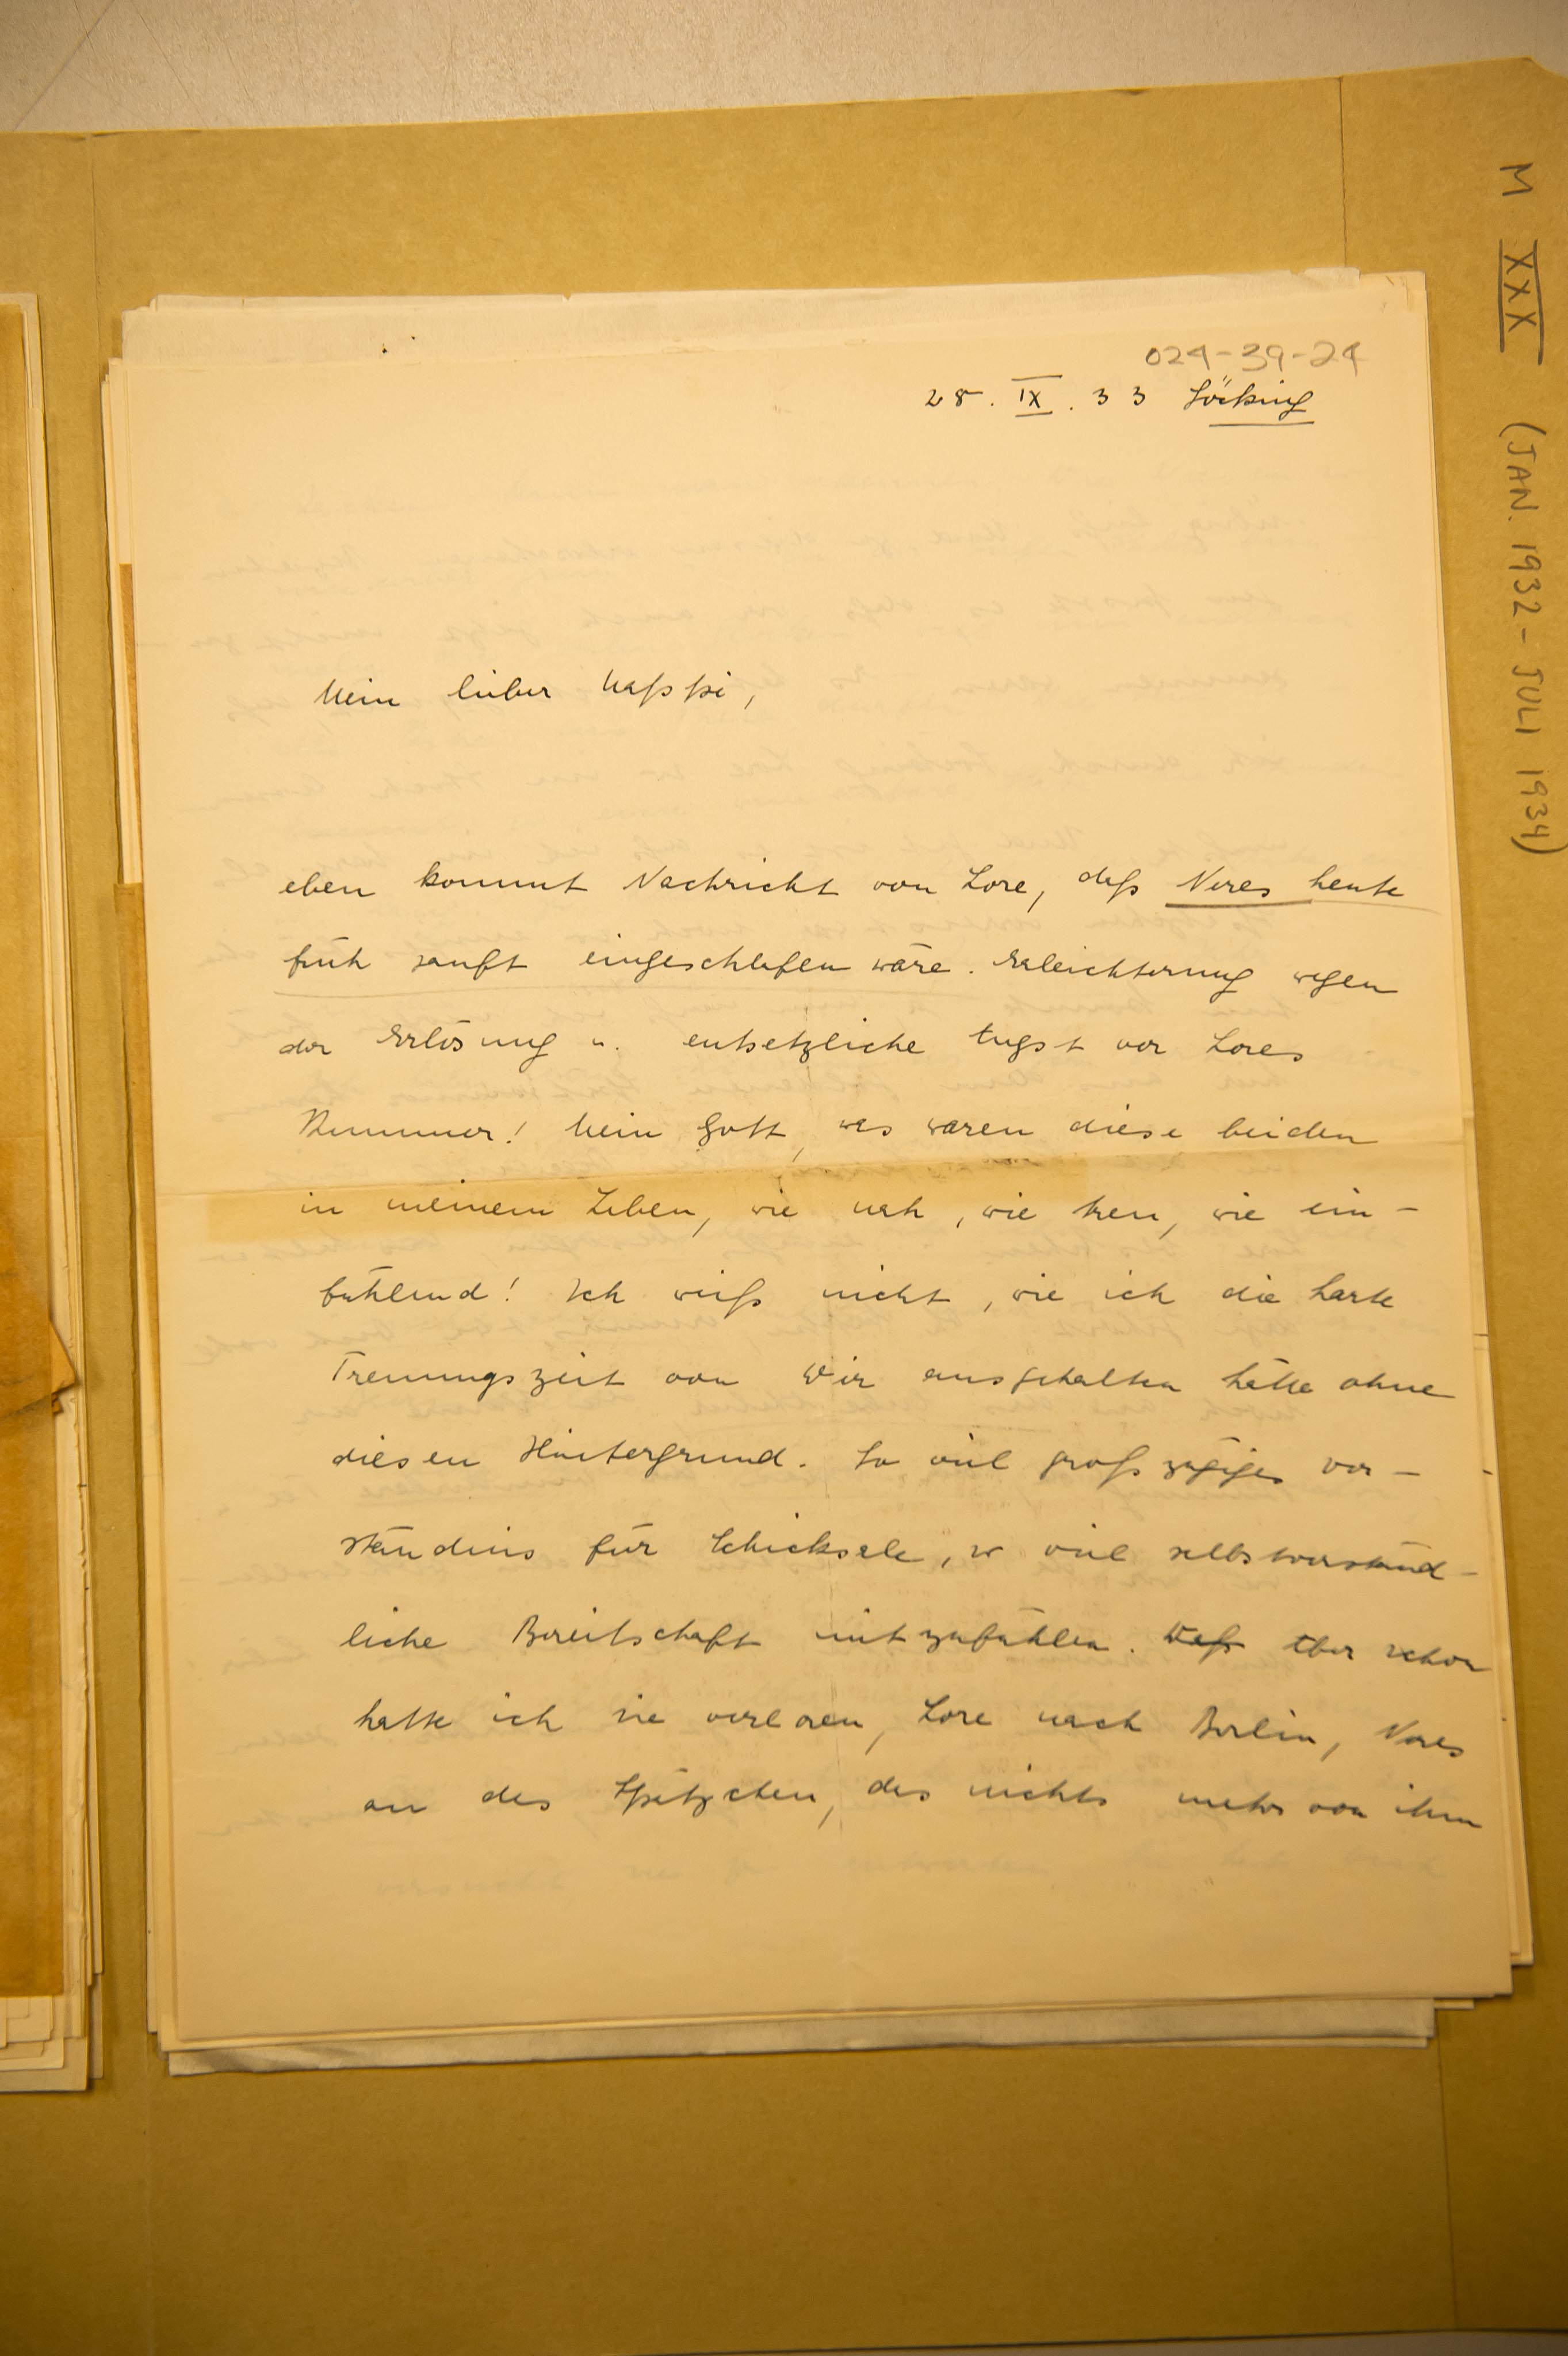 M XXX (JAN. 1932 - JULI 1934)
024-39-24
28. IX. 33 Söcking
Mein lieber
eben kommt Nachricht von Lore, daß Neres heute
früh sanft eingeschlafen wäre. Erleichterung wegen
der Erlösung u. entsetzliche Angst vor Lores
Kummer! Mein Gott, was waren diese beiden
in meinem Leben, wie nah, wie treu, wie ein-
fühlend! Ich weiß nicht, wie ich die harte
Trennungszeit von Dir ausgehalten hätte ohne
diesen Hintergrund. So viel großzügiges Ver-
ständnis für Schicksale, so viel selbstverständ-
liche Bereitschaft mitzufühlen. Daß Aber schon
hatte ich sie verloren, Lore nach Berlin, Neres
an das Spitzchen, das nichts mehr von ihm